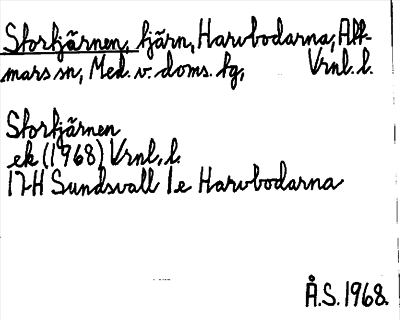 Storkjärnen, tjärn, Harvbodarna, Att-
mars sn, Med. v. doms. tg, Vrnl. l.
Storkjärnen
ek (1968) Vrnl. l.
17H Sundsvall 1e Harvbodarna
Å.S. 1968.